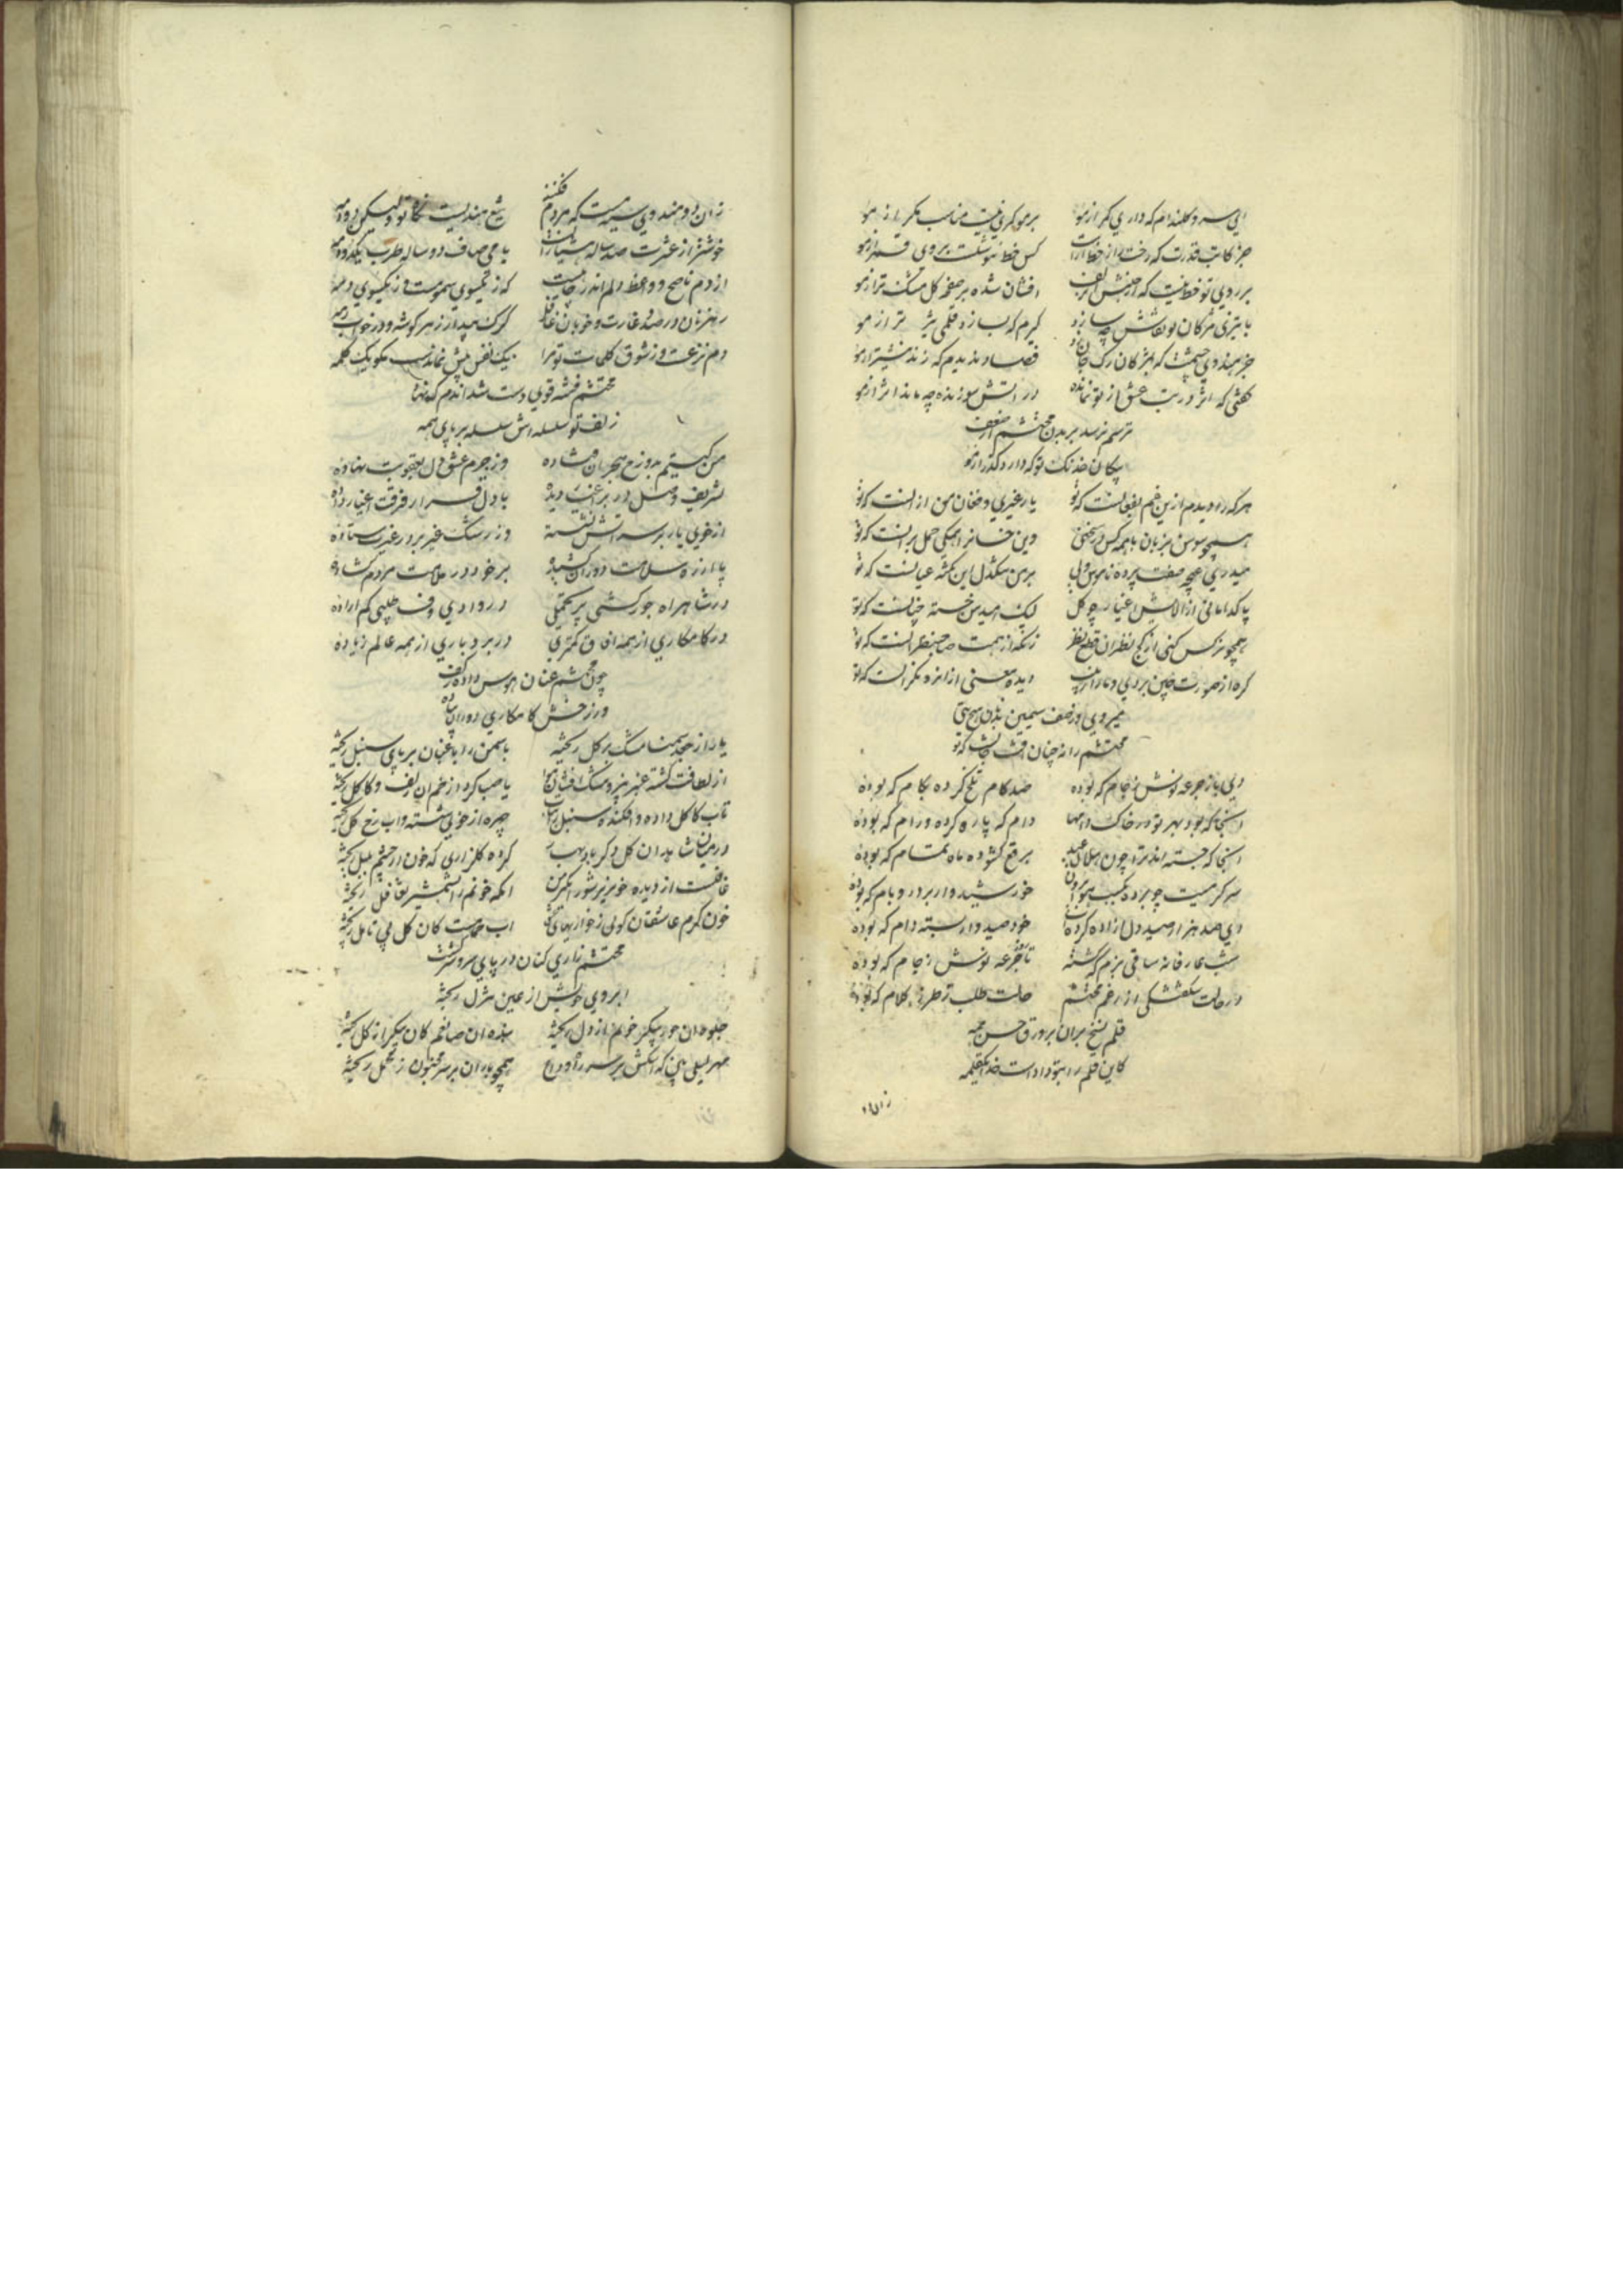 ای سرو گلندام که داری کمر از مو
بر مو کمری نیست مناسب مگر از مو
جز کاتب قدرت که رخت از خط آراست
کس خط ننوشت بروی قمر از مو
بر روی تو خط نیست که از جنبش زلف
افشان شده بر صفحه کل مشک تر از مو
با تیزی مژکان تو نقاش چه سازد
کیرم که بسازد قلمی تیز تر از مو
جز هندوی چشمت که بمژکان رک جان زد
فصاد ندیدیم که زند نیشتر از مو
کفتی که اثر در تب عشق از تو نمانده
در آتش سوزنده چه ماند اثر از مو
ترسم نرسد بر بدن محتشم از ضعف
پیکان خدنک تو که دارد کذر از مو
هر که را دیدم ازین غم بفغانست که تو
یار غیری و فغان من از انست که تو
همچو سوسن بزبان با همه کس در سخنی
وین خسانرا همکی حمل برانست که تو
میدری غنچه صفت پرده ناموس ولی
بر من تنکدل این نکته عیانست که تو
پاکدامانی از الایش اغیار چو کل
لیک امید من خسته چنانست که تو
همچو نرکس کنی از کج نظران قطع نظر
زانکه از همت صاحبنظرانست که تو
کره از صورت چین بردی و عار از زین
دیده معنی از انرو نکرانست که تو
میروی در نصف سیمین بدنان هیچ
محتشم را نه چنان افت جانست که تو
دی باز جرعه نوش ز جام که بوده
صد کام تلخ کرده بکام که بوده
آنجا که بود بهر تو در خاک دامها
دام که پاره کرده و رام که بوده
آنجا که جسته اند ترا چون هلال عید
برقع کشوده ماه تمام که بوده
سر کرمیت چو برده بکسب هوا برون
خورشیدوار بر در و بام که بوده
ای صد هزار صید دل ازاده کرده
خود صیدوار بسته دام که بوده
شب عارفانه ساقی بزم که کشته
تا جرعه نوش ز جام که بوده
در حالت شکفتکی از رغم محتشم
حالت طلب ز طرز کلام که بوده
قلم نسخ بران بر ورق حسن همه
کاین قلم را بتو داداست خدا یکقلمه
زان دو
زان دو هندوی سیه مست که مردم فکنند
تیغ هندیست نکاه تو ولیکن دو دمه
خوشتر از عشرت صد ساله هشیارانست
با می صاف دو ساله طرب یکدو دمه
از دم ناصح و واعظ دلم اندر چاهیست
که ز یکسوی سمومست و ز یکسوی دمه
رهزنان در صدد غارت و خوبان غافل
کرک بیدار ز هر کوشه و در خواب رمه
دم نزعست و ز شوق کلمات تو مرا
یک نفس پیش نماندست بکو یک کلمه
محتشم فتنه قوی دست شد اندم که نهاد
زلف تو سلسله اش سلسله بر پای همه
من کیستم بدوزخ هجران فتاده
وز جرم عشق دل بعقوبت نهاده
تشریف وصل در بر اغیار دیده
با دل قرار فرقت اغیار داده
از خوی یار بر سر آتش نشسته
وز رشک غیر بر در غیرت ستاده
پا از ره سلامت دوران کشیده
بر خود در ملامت مردم کشاده
در شاهراه جور کشی پر تحملی
در وادی وفا طلبی کم اراده
در کامکاری از همه افاق کمتری
در بردباری از همه عالم زیاده
چون محتشم عنان هوس داده ز کف
در رخش کامکاری دوران پیاده
یار از جعد سمنسا مشک بر کل ریخته
یاسمن را باغبان بر پای سنبل ریخته
از لطافت کشته عنبر بیز و مشک افشان هوا
یا صبا کرد از خم آن زلف و کاکل ریخته
تاب کاکل داده و افکنده سنبل را بتاب
چهره از خوی شسته و آب رخ کل ریخته
در میان شاهدان کل دکر باد بهار
کرده کلزاری که خون از چشم بلبل ریخته
غافلست از دیده خونریز شور انکیز من
آنکه خونم را بشمشیر تغافل ریخته
خون کرم عاشقان کویی ز خواریهای
آب حمامست کان کل بی تامل ریخته
محتشم زاری کنان در پای سرو سرکشت
ابروی خویش از عین تنزل ریخته
جلوه آن حور پیکر خونم از دل ریخته
بنده آن صانعم کان پیکر از کل ریخته
مهر لیلی بین که اشکش بر سر راه وداع
همچو باران بر سر مجنون ز محمل ریخته